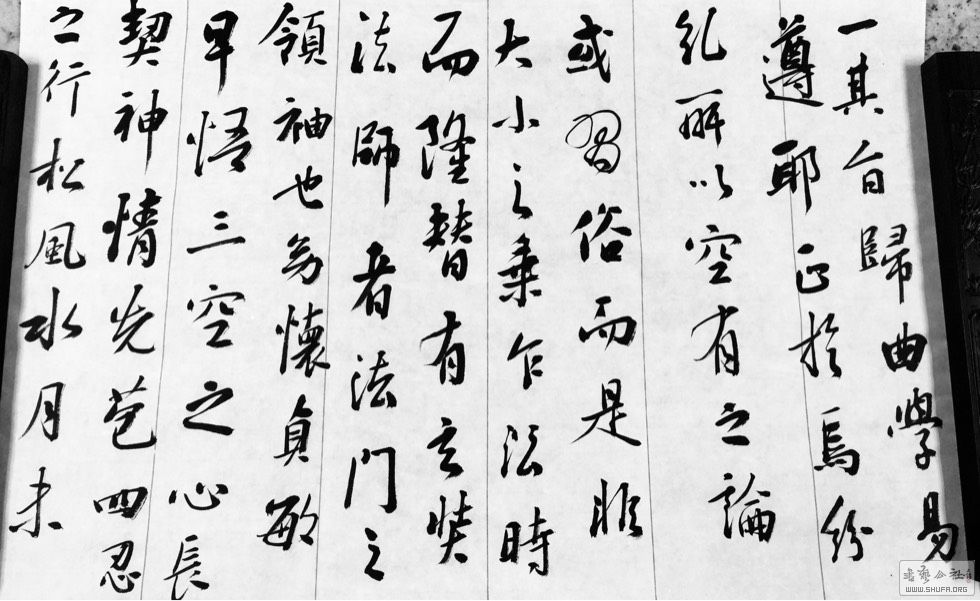 一其旨歸曲學易
遵耶正於焉紛
糺所以空有之論
或習俗而是非
大小之乘乍沿時
而隆替有玄奘
法師者法門之
領袖也幼懷貞敏
早悟三空之心長
契神情先苞四忍
之行松風水月未
書藝公社
WWW.SHUFA.ORG